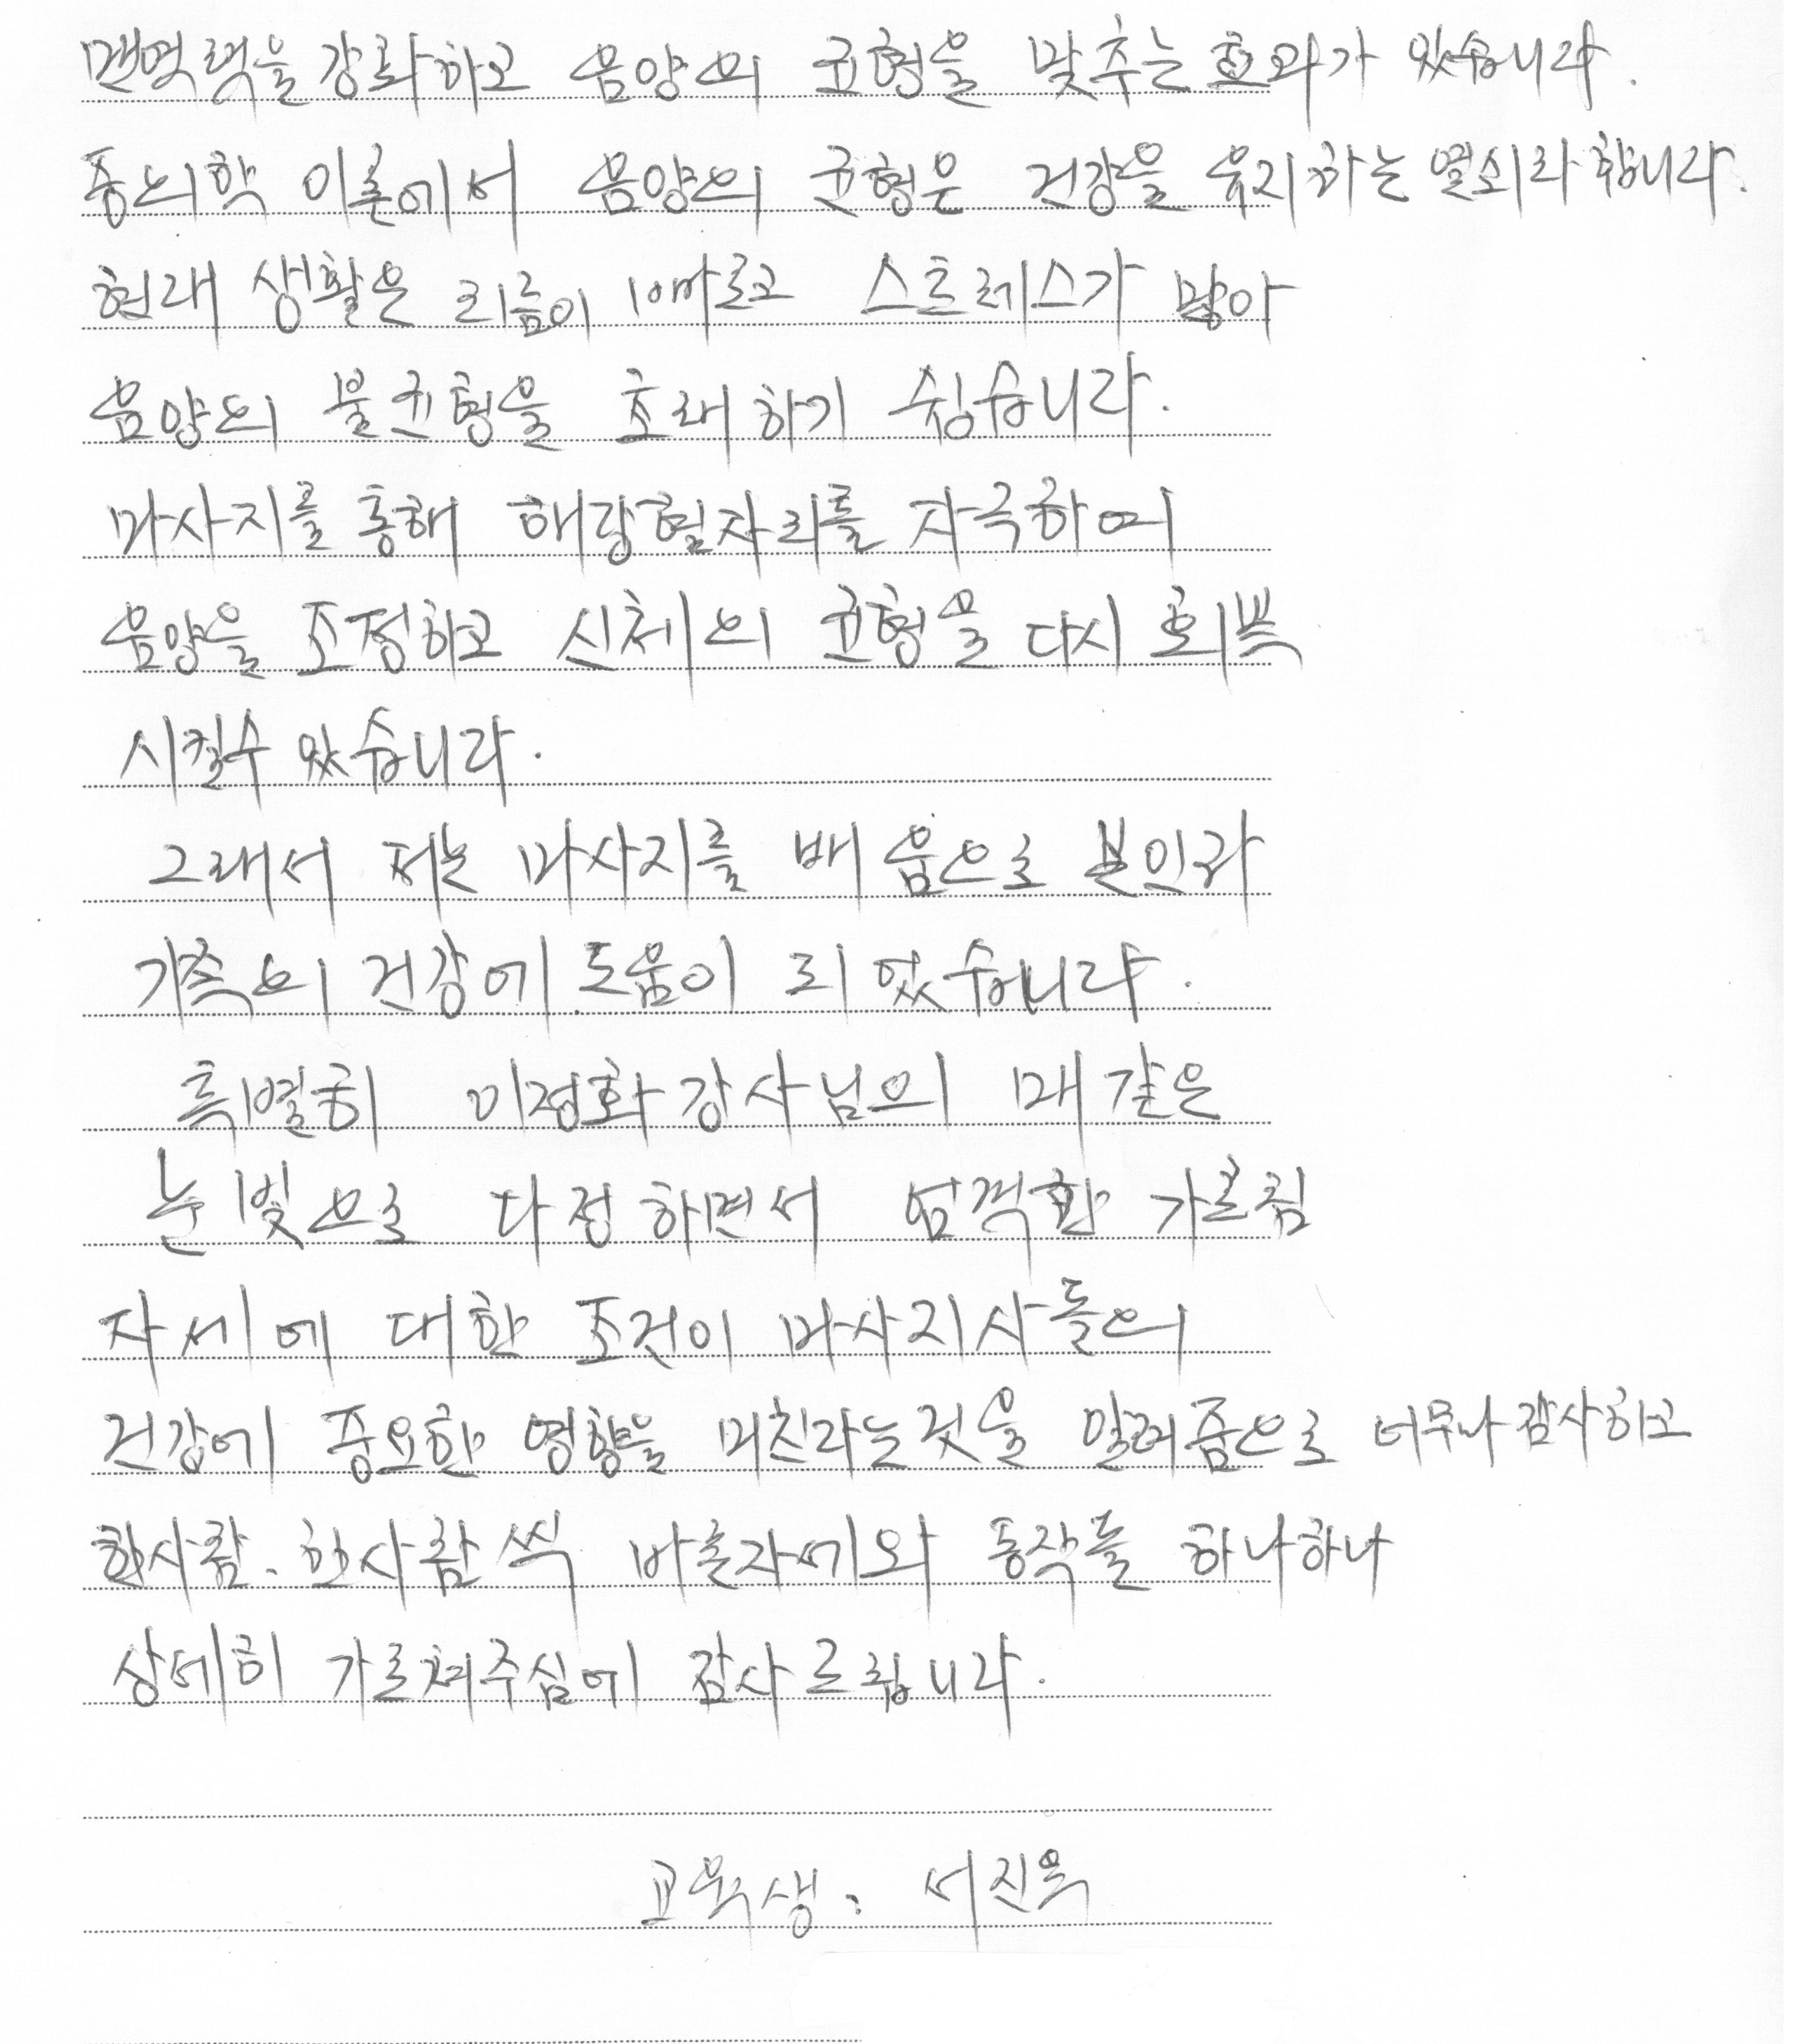 면역력을 강화하고 음양의 균형을 맞추는 효과가 있습니다.
중의학 이론에서 음양의 균형은 건강을 유지하는 열쇠라 합니다.
현대 생활은 리듬이 빠르고 스트레스가 많아
음양의 불균형을 초래하기 쉽습니다.
마사지를 통해 해당혈자리를 자극하여
음양을 조정하고 신체의 균형을 다시 회복
시킬수 있습니다.
그래서 저는 마사지를 배움으로 본인과
가족의 건강에 도움이 되었습니다.
특별히 이정화강사님의 매같은
눈빛으로 다정하면서 엄격한 가르침
자세에 대한 조건이 마사지사들의
건강에 중요한 영향을 미친다는것을 알려줌으로 너무나 감사하고
한사람. 한사람씩 바른자세와 동작들 하나하나
상세히 가르쳐주심에 감사드립니다.
교육생: 서진옥